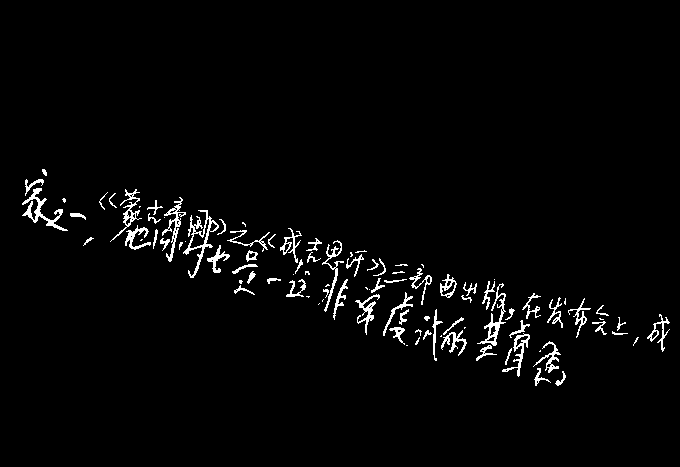 家之一,《蒙古帝国》之《成吉思汗》三部曲出版。在发布会上,成
他同时也是一位非常虔诚的基督